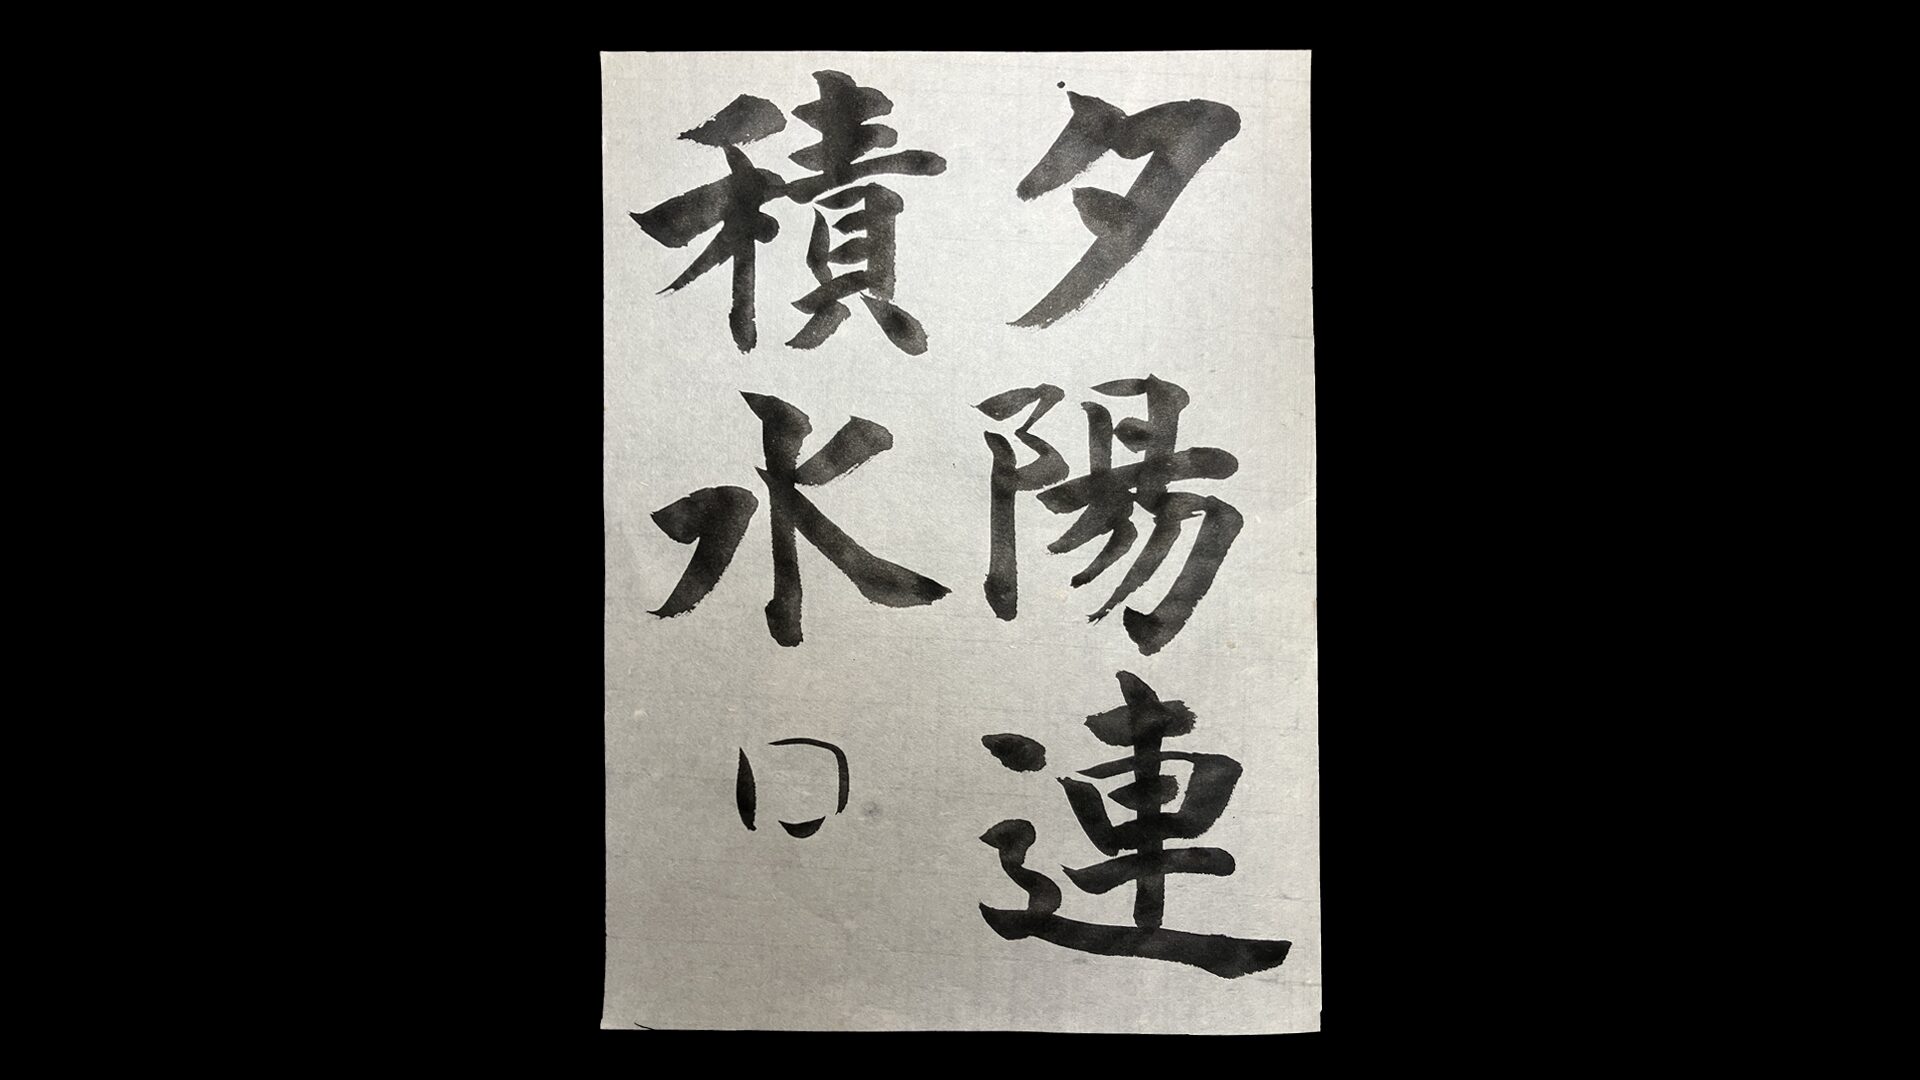 夕陽連
積水口